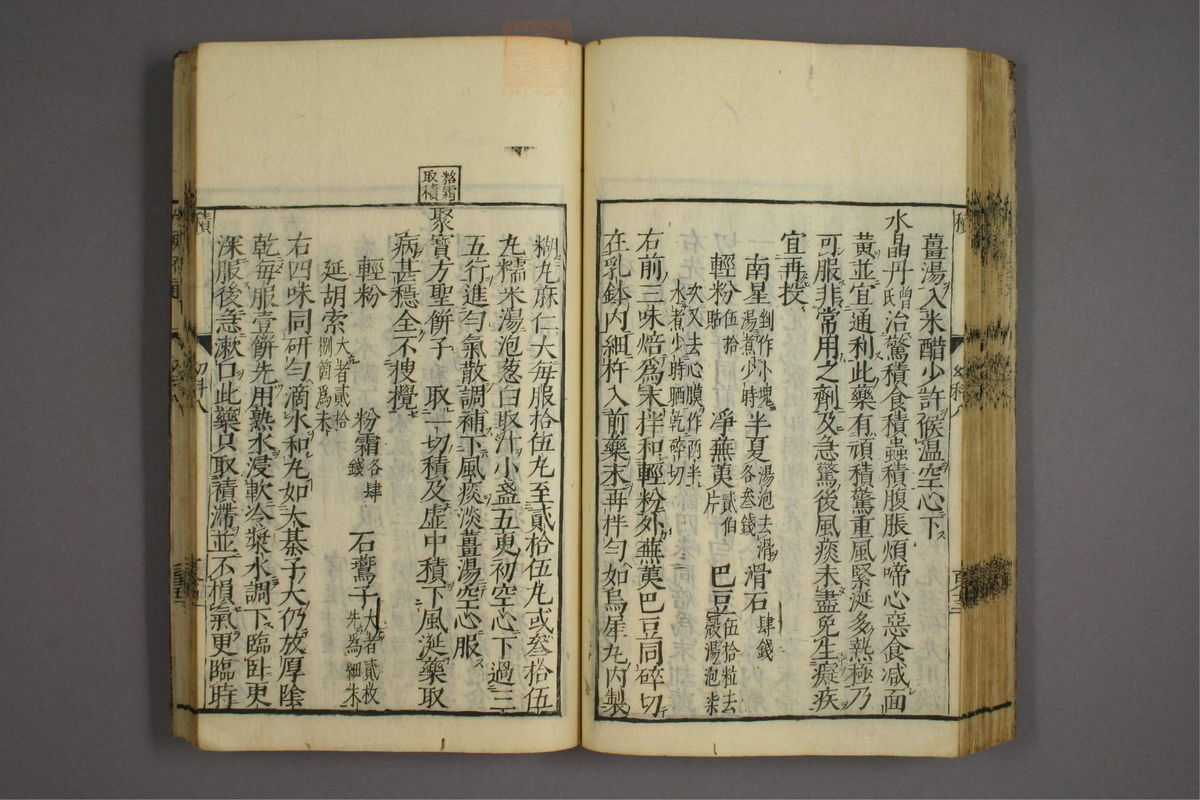 薑湯入米醋少許候温空心下
水晶丹曾氏治驚積食積蟲積腹脹煩啼心惡食减面
黄並宜通利此藥有頑積驚重風緊涎多熱極乃
可服非常用之劑及急驚後風痰未盡免生癡疾
宜再投
南星剉作小塊湯煮少時半夏湯泡去滑各叁錢滑石肆錢
輕粉伍拾貼淨蕪荑貳伯片巴豆伍拾粒去殻湯泡柒
次又去心膜作兩半水煮少時晒乾碎切
右前三味焙爲末拌和輕粉外蕪荑巴豆同碎切
在乳鉢内細杵入前藥末再拌勻如烏犀丸内製
糊丸麻仁大毎服拾伍丸至貳拾伍丸或叁拾伍
丸糯米湯泡葱白取汁小盞五更初空心下過三
五行進勻氣散調補下風痰淡薑湯空心服
取積
聚寳方聖餅子取一切積及虚中積下風涎藥取
病甚穩全不搜攪
輕粉 粉霜各肆錢 石鷰子大者貳枚先爲細末
延胡索大者貳拾捌箇爲末
右四味同研勻滴水和丸如大棊子大仍放厚陰
乾毎服壹餅先用熱水浸軟冷漿水調下臨卧更
深服後急漱口此藥只取積滯並不損氣更臨時